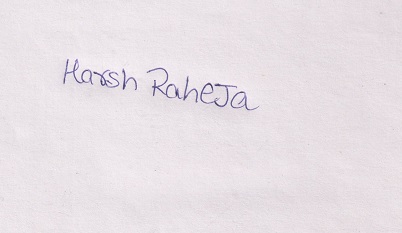 Harsh Raheja